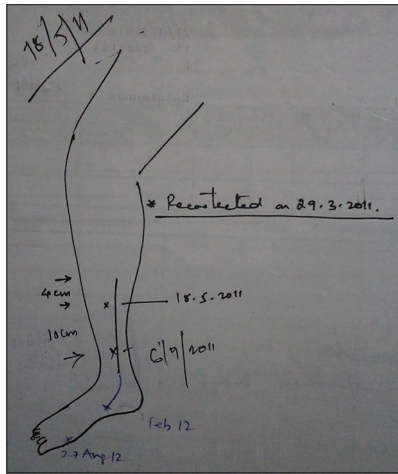 18/5/11
* Reconstected on 29.3.2011.
4cm
18.5.2011
10cm
6/9/2011
Feb 12
27 Aug 12